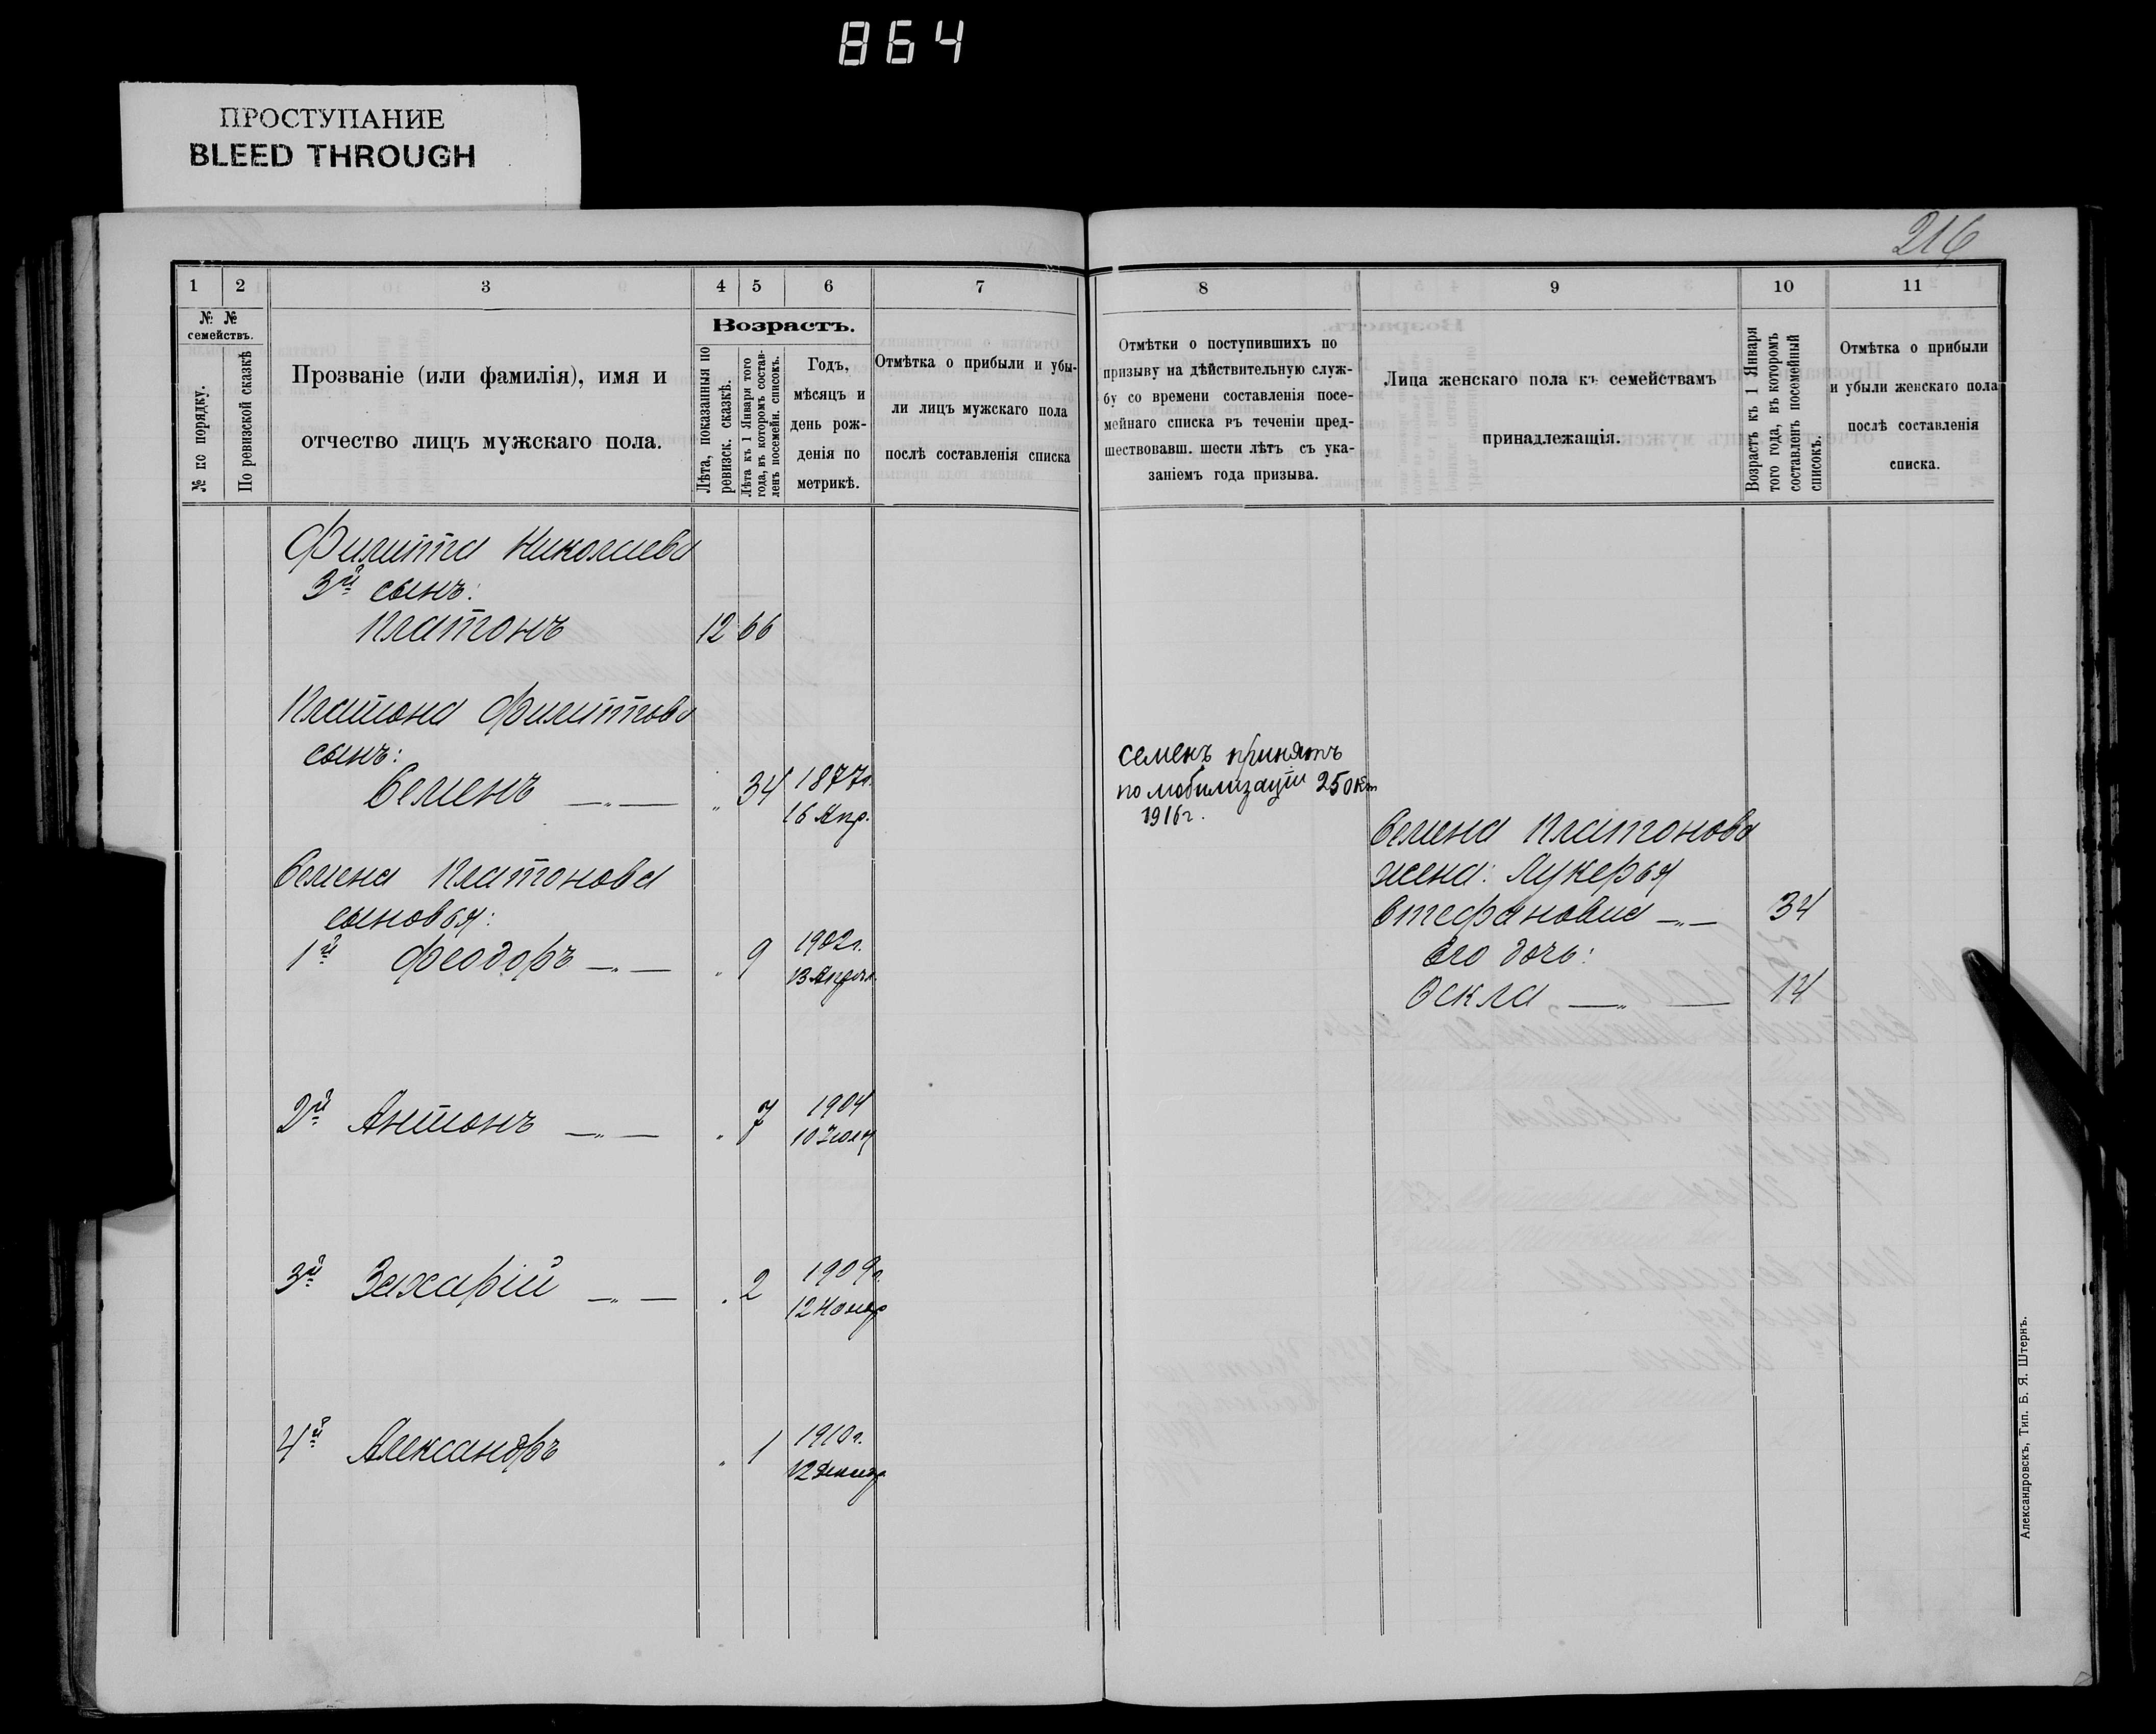 864
ПРОСТУПАНИЕ
BLEED THROUGH
216
1 2 3 4 5 6 7 8 9 10 11
№ № семействъ.
№ по порядку.
По ревизской сказкѣ
Прозваніе (или фамилія), имя и
отчество лицъ мужскаго пола.
Возрастъ.
Лѣта, показанныя по
ревизск. сказкѣ.
Лѣта къ 1 Января того
года, въ которомъ состав-
ленъ посемейн. списокъ.
Годъ,
мѣсяцъ и
день рож-
денія по
метрикѣ.
Отмѣтка о прибыли и убы-
ли лицъ мужскаго пола
послѣ составленія списка
Отмѣтки о поступившихъ по
призыву на дѣйствительную служ-
бу со времени составленія посе-
мейнаго списка въ теченіи пред-
шествовавш. шести лѣтъ съ ука-
заніемъ года призыва.
Лица женскаго пола къ семействамъ
принадлежащія.
Возрастъ къ 1 Января
того года, въ которомъ
составленъ посемейный
списокъ.
Отмѣтка о прибыли
и убыли женскаго пола
послѣ составленія
списка.
Филиппа Николаева
3й сынъ:
Платонъ 12 66
Платона Филиппова
сынъ:
Семенъ —„— „ 34 1877г.
16 Апр.
Семена Платонова
сыновья:
1й Феодоръ —„— „ 9 1902г.
13 Апрѣл.
2й Антонъ —„— „ 7 1904
10 Іюля
3й Захарій —„— „ 2 1909г.
12 Ноябр
4й Александръ „ 1 1910г.
12 Декабр
Семенъ принятъ
по мобилизаціи 25 окт
1916г.
Семена Платонова
жена: Лукерья
Стефановна —„— 34
Его дочь:
Ѳекла —„— 14
Александровскъ, Тип. Б. Я. Штернъ.